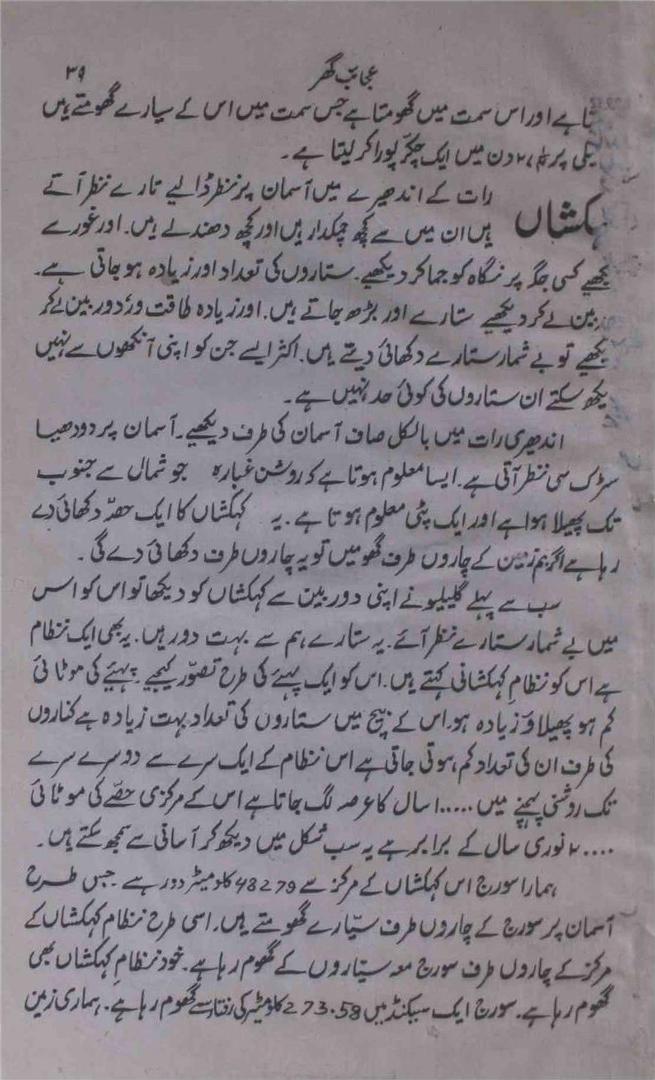 عجائب گھر ۳۹
تا ہے اور اس سمت میں گھومتا ہے جس سمت میں اس کے سیارے گھومتے ہیں
دن میں ایک چکر پورا کر لیتا ہے۔
ہکشاں رات کے اندھیرے میں آسمان پر نظر ڈالیے تارے نظر آتے
ہیں ان میں سے کچھ چمکدار ہیں اور کچھ دھندلے ہیں۔ اور غور سے
یکھیے کسی جگہ پر نگاہ کو جما کر دیکھیے۔ ستاروں کی تعداد اور زیادہ ہو جاتی ہے۔
ربین لے کر دیکھیے ستارے اور بڑھ جاتے ہیں۔ اور زیادہ طاقت ور دوربین لے کر
یکھیے تو بے شمار ستارے دکھائی دیتے ہیں۔ اکثر ایسے جن کو اپنی آنکھوں سے نہیں
یکھ سکتے ان ستاروں کی کوئی حد نہیں ہے۔
اندھیری رات میں بالکل صاف آسمان کی طرف دیکھیے۔ آسمان پر دودھیا
سڑک سی نظر آتی ہے۔ ایسا معلوم ہوتا ہے کہ روشن غبارہ جو شمال سے جنوب
تک پھیلا ہوا ہے اور ایک پٹی معلوم ہوتا ہے۔ یہ کہکشاں کا ایک حصہ دکھائی دے
رہا ہے اگر ہم زمین کے چاروں طرف گھومیں تو یہ چاروں طرف دکھائی دے گی۔
سب سے پہلے گلیلیو نے اپنی دوربین سے کہکشاں کو دیکھا تو اس کو اس
میں بے شمار ستارے نظر آئے۔ یہ ستارے ہم سے بہت دور ہیں۔ یہ بھی ایک نظام
ہے اس کو نظامِ کہکشانی کہتے ہیں۔ اس کو ایک پہیے کی طرح تصوّر کیجیے۔ پہیے کی موٹائی
کم ہو پھیلاؤ زیادہ ہو۔ اس کے بیچ میں ستاروں کی تعداد بہت زیادہ ہے کناروں
کی طرف ان کی تعداد کم ہوتی جاتی ہے اس نظام کے ایک سرے سے دوسرے سرے
تک روشنی پہنچنے میں ۱۰۰۰۰۰ سال کا عرصہ لگ جاتا ہے اس کے مرکزی حصّے کی موٹائی
۲۰۰۰۰ نوری سال کے برابر ہے یہ سب شکل میں دیکھ کر آسانی سے سمجھ سکتے ہیں۔
ہمارا سورج اس کہکشاں کے مرکز سے 48279 کلومیٹر دور ہے۔ جس طرح
آسمان پر سورج کے چاروں طرف سیّارے گھومتے ہیں۔ اسی طرح نظام کہکشاں کے
مرکز کے چاروں طرف سورج معہ سیّاروں کے گھوم رہا ہے۔ خود نظامِ کہکشاں بھی
گھوم رہا ہے۔ سورج ایک سیکنڈ میں 273.58 کلومیٹر کی رفتار سے گھوم رہا ہے۔ ہماری زمین